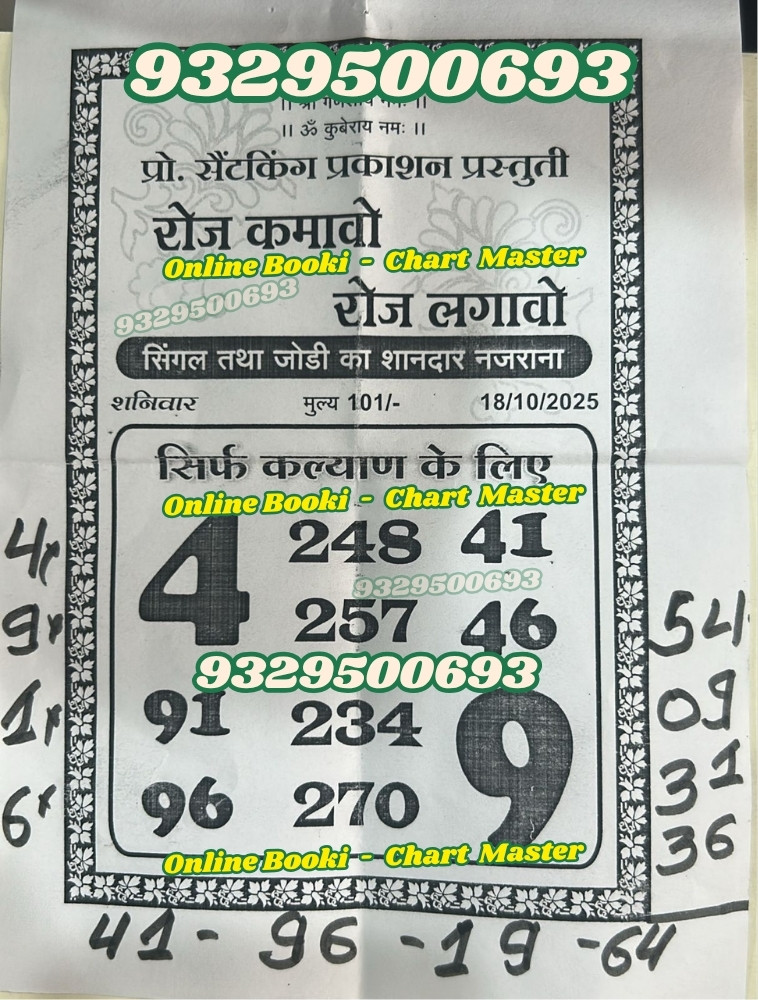 9329500693
।। ॐ कुबेराय नमः ।।
प्रो. सैंटकिंग प्रकाशन प्रस्तुती
रोज कमावो
Online Booki - Chart Master
9329500693
रोज लगावो
सिंगल तथा जोडी का शानदार नजराना
शनिवार मुल्य 101/- 18/10/2025
सिर्फ कल्याण के लिए
Online Booki - Chart Master
4 248 41
9329500693
257 46
9329500693
91 234 9
96 270
Online Booki - Chart Master
4x
9x
1x
6x
54
09
31
36
41 - 96 - 19 - 64